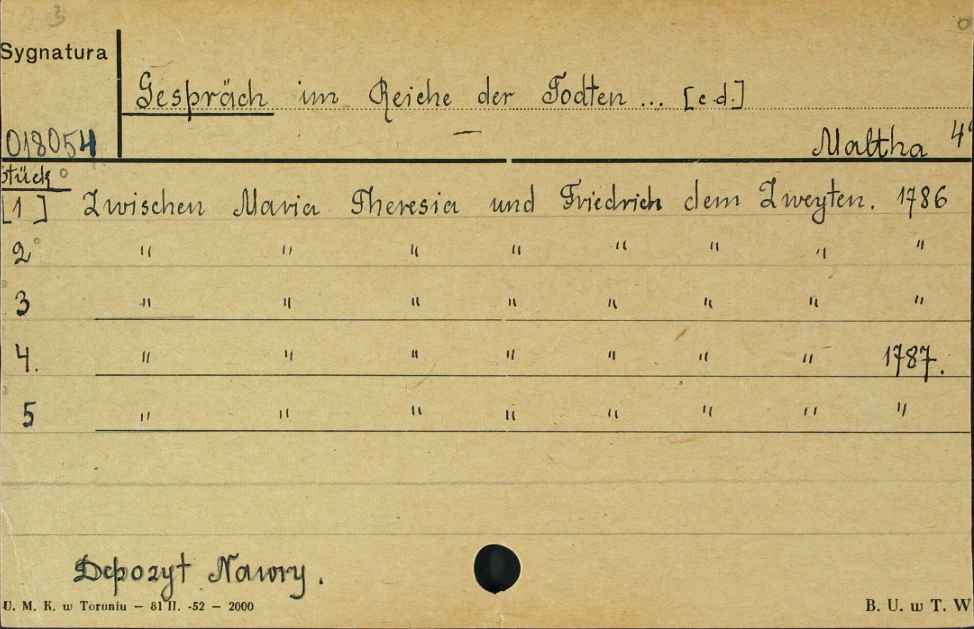 3
Sygnatura
Gespräch im Reiche der Todten ... [c.d.]
018054 Maltha 4°
Stück
[1] Zwischen Maria Theresia und Friedrich dem Zweyten. 1786
2 " " " " " " " "
3 " " " " " " " "
4. " " " " " " " 1787.
5 " " " " " " " "
Depozyt Nawry.
U. M. K. w Toruniu — 81 II. -52 — 2000 B. U. w T. W